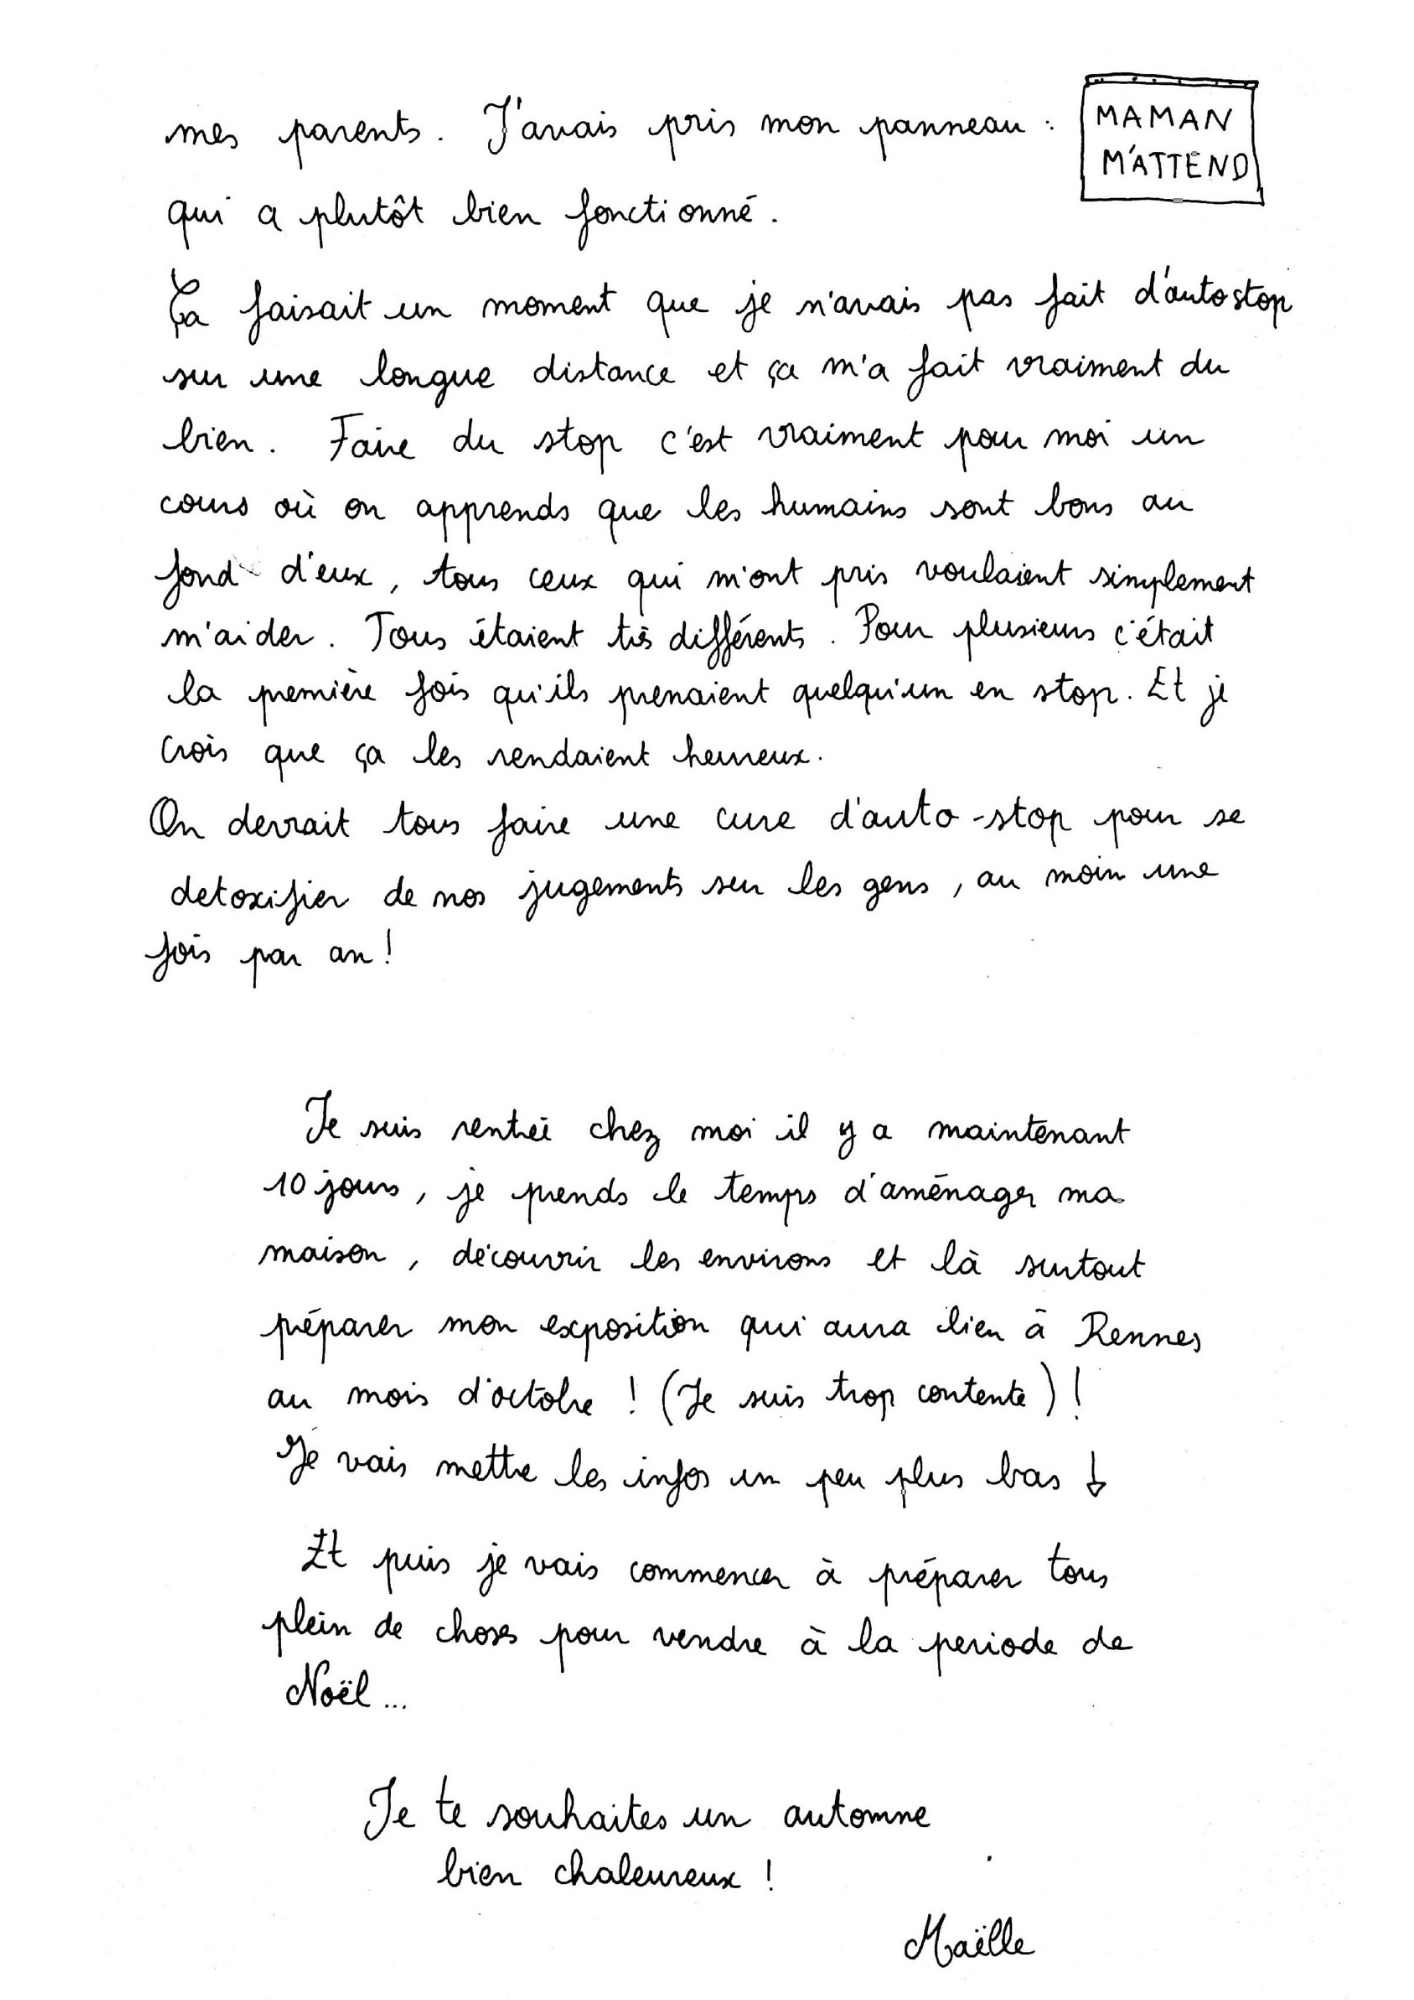 mes parents. J'avais pris mon panneau : MAMAN
M'ATTEND
qui a plutôt bien fonctionné.
Ça faisait un moment que je n'avais pas fait d'autostop
sur une longue distance et ça m'a fait vraiment du
bien. Faire du stop c'est vraiment pour moi un
cours où on apprends que les humains sont bons au
fond d'eux, tous ceux qui m'ont pris voulaient simplement
m'aider. Tous étaient très différents. Pour plusieurs c'était
la première fois qu'ils prenaient quelqu'un en stop. Et je
crois que ça les rendaient heureux.
On devrait tous faire une cure d'auto-stop pour se
detoxifier de nos jugements sur les gens, au moin une
fois par an !
Je suis rentrée chez moi il y a maintenant
10 jours, je prends le temps d'aménager ma
maison, découvrir les environs et là surtout
préparer mon exposition qui aura lieu à Rennes
au mois d'octobre ! (Je suis trop contente) !
Je vais mettre les infos un peu plus bas ↓
Et puis je vais commencer à préparer tous
plein de choses pour vendre à la periode de
Noël...
Je te souhaites un automne
bien chaleureux !
Maëlle